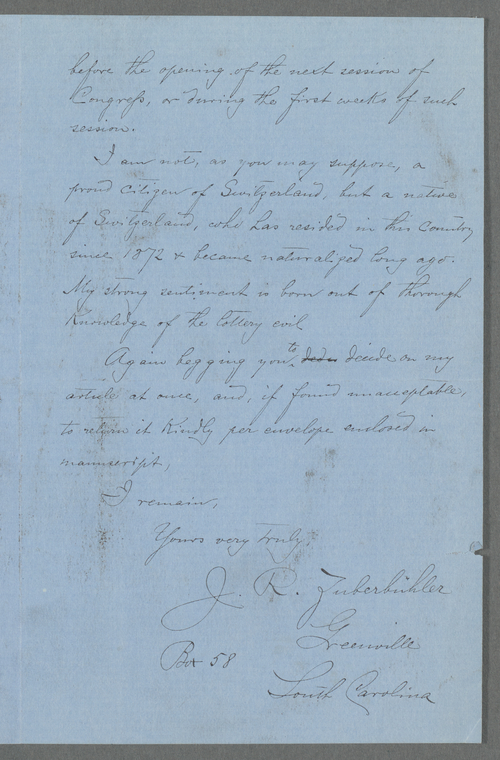 before the opening of the next session of
Congress, or during the first weeks of such
session.
I am not, as you may suppose, a
proud citizen of Switzerland, but a native
of Switzerland, who has resided in this Country
since 1872 & became naturalized long ago.
My strong sentiment is born out of thorough
Knowledge of the lottery evil
Again begging you to decide on my
article at once, and, if found unacceptable,
to return it Kindly per envelope enclosed in
manuscript,
I remain,
Yours very truly,
J. R. Zuberbühler
Greenville
Box 58
South Carolina